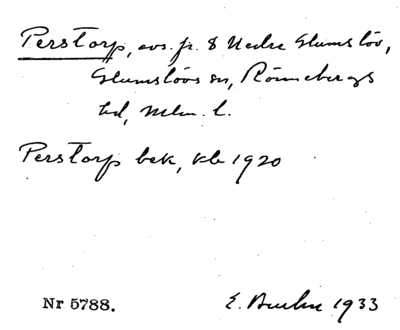 Perstorp, avs. fr. 8 Nedre Glumslöv,
Glumslövs sn, Rönnebergs
hd, Mlm. l.
Perstorp bek, kb 1920
Nr 5788.
E. 1933